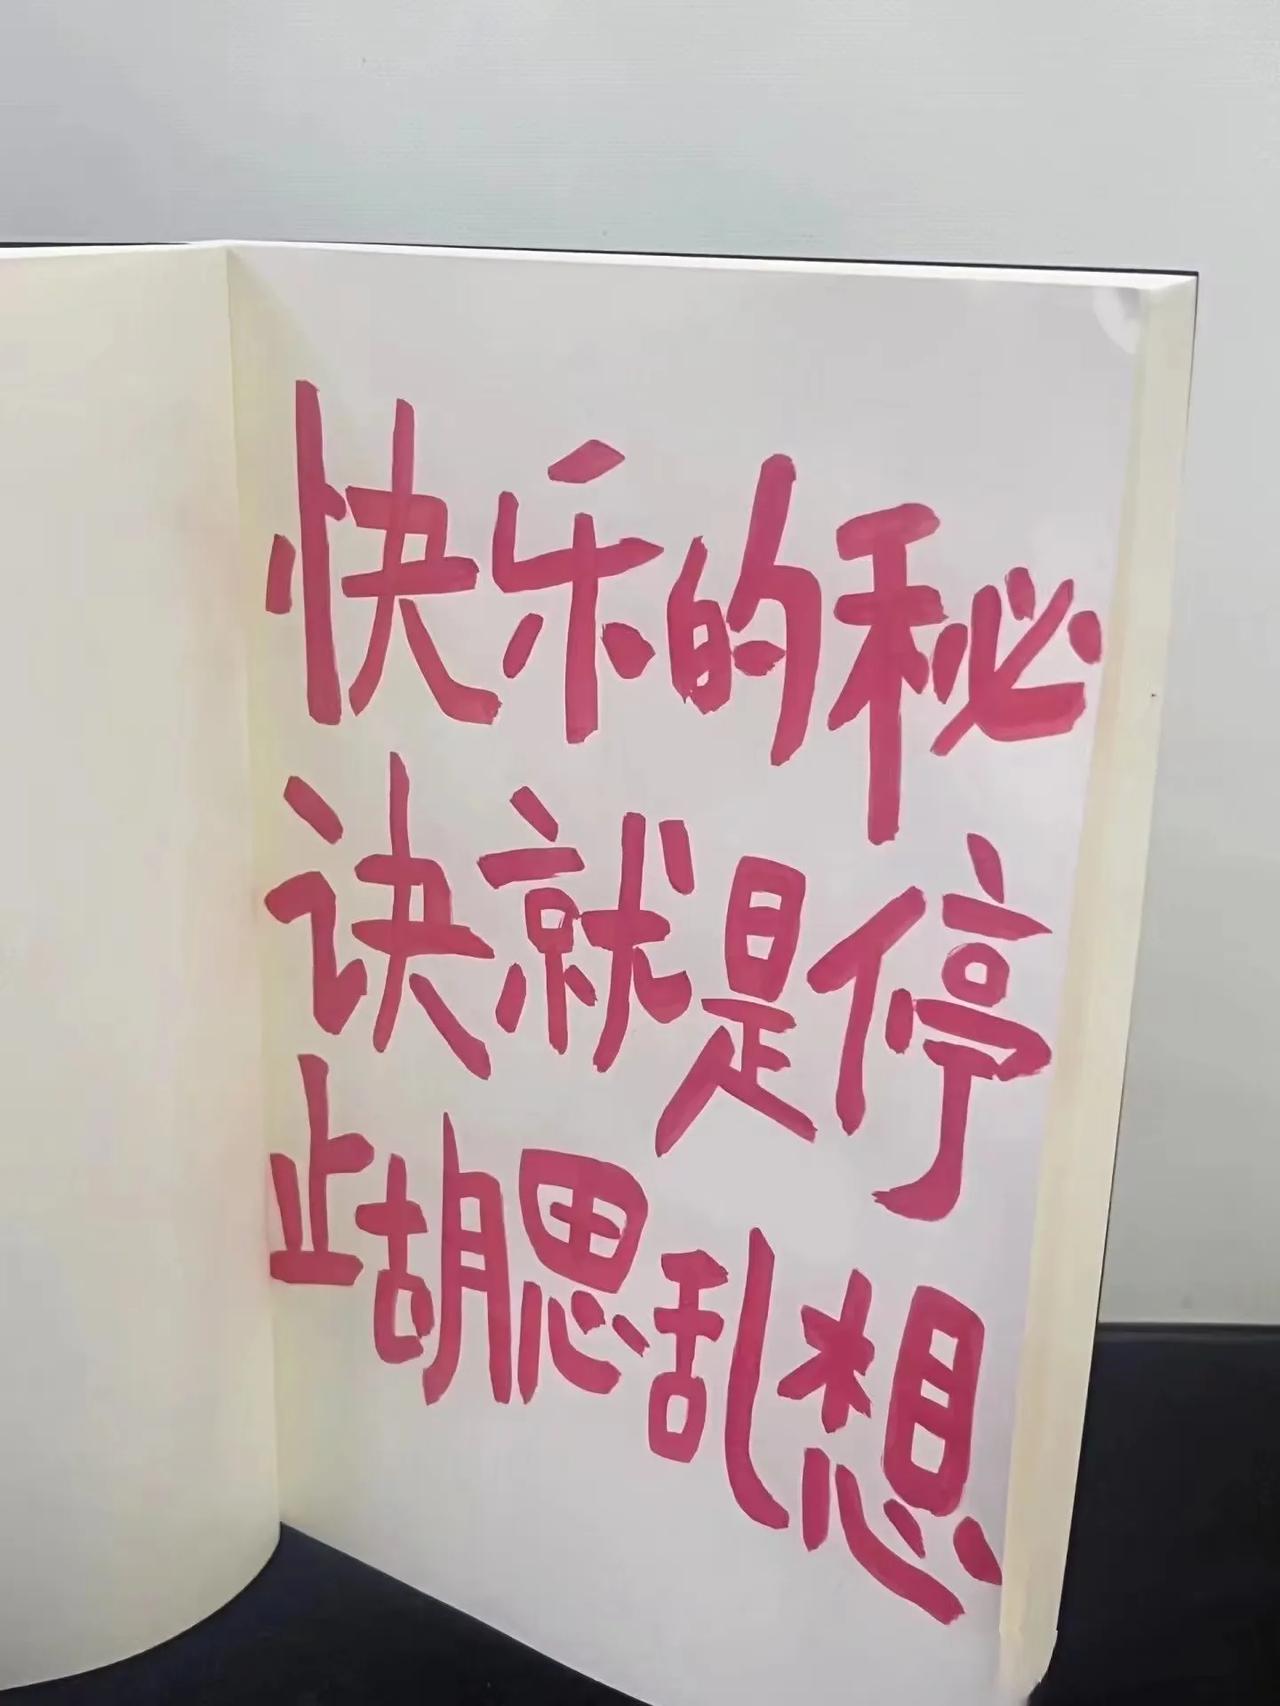 快乐的秘
诀就是停
止胡思乱想